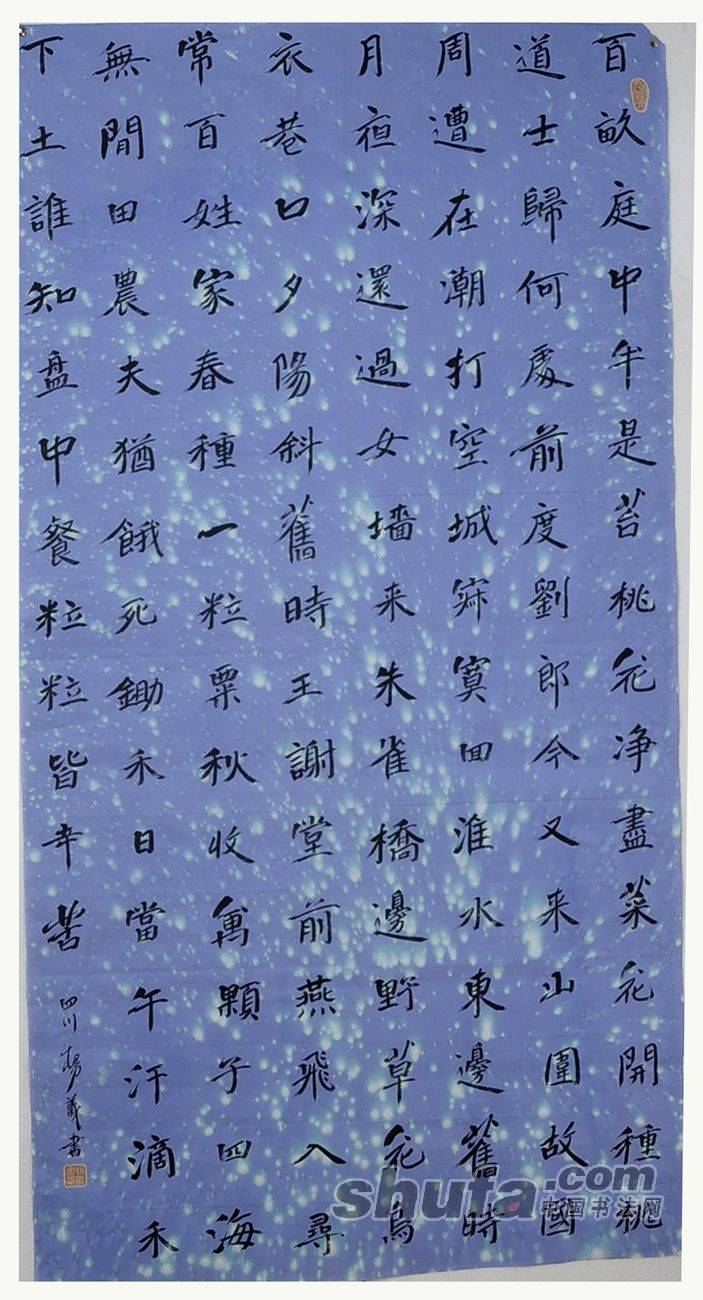 百畝庭中半是苔桃花净盡菜花開種桃
道士歸何處前度劉郎今又来山圍故國
周遭在潮打空城寂寞回淮水東邊舊時
月夜深還過女墻来朱雀橋邊野草花烏
衣巷口夕陽斜舊時王謝堂前燕飛入尋
常百姓家春種一粒粟秋收萬顆子四海
無閒田農夫猶餓死鋤禾日噹午汗滴禾
下土誰知盘中餐粒粒皆辛苦
四川楊義書
shufa.com
中国书法网